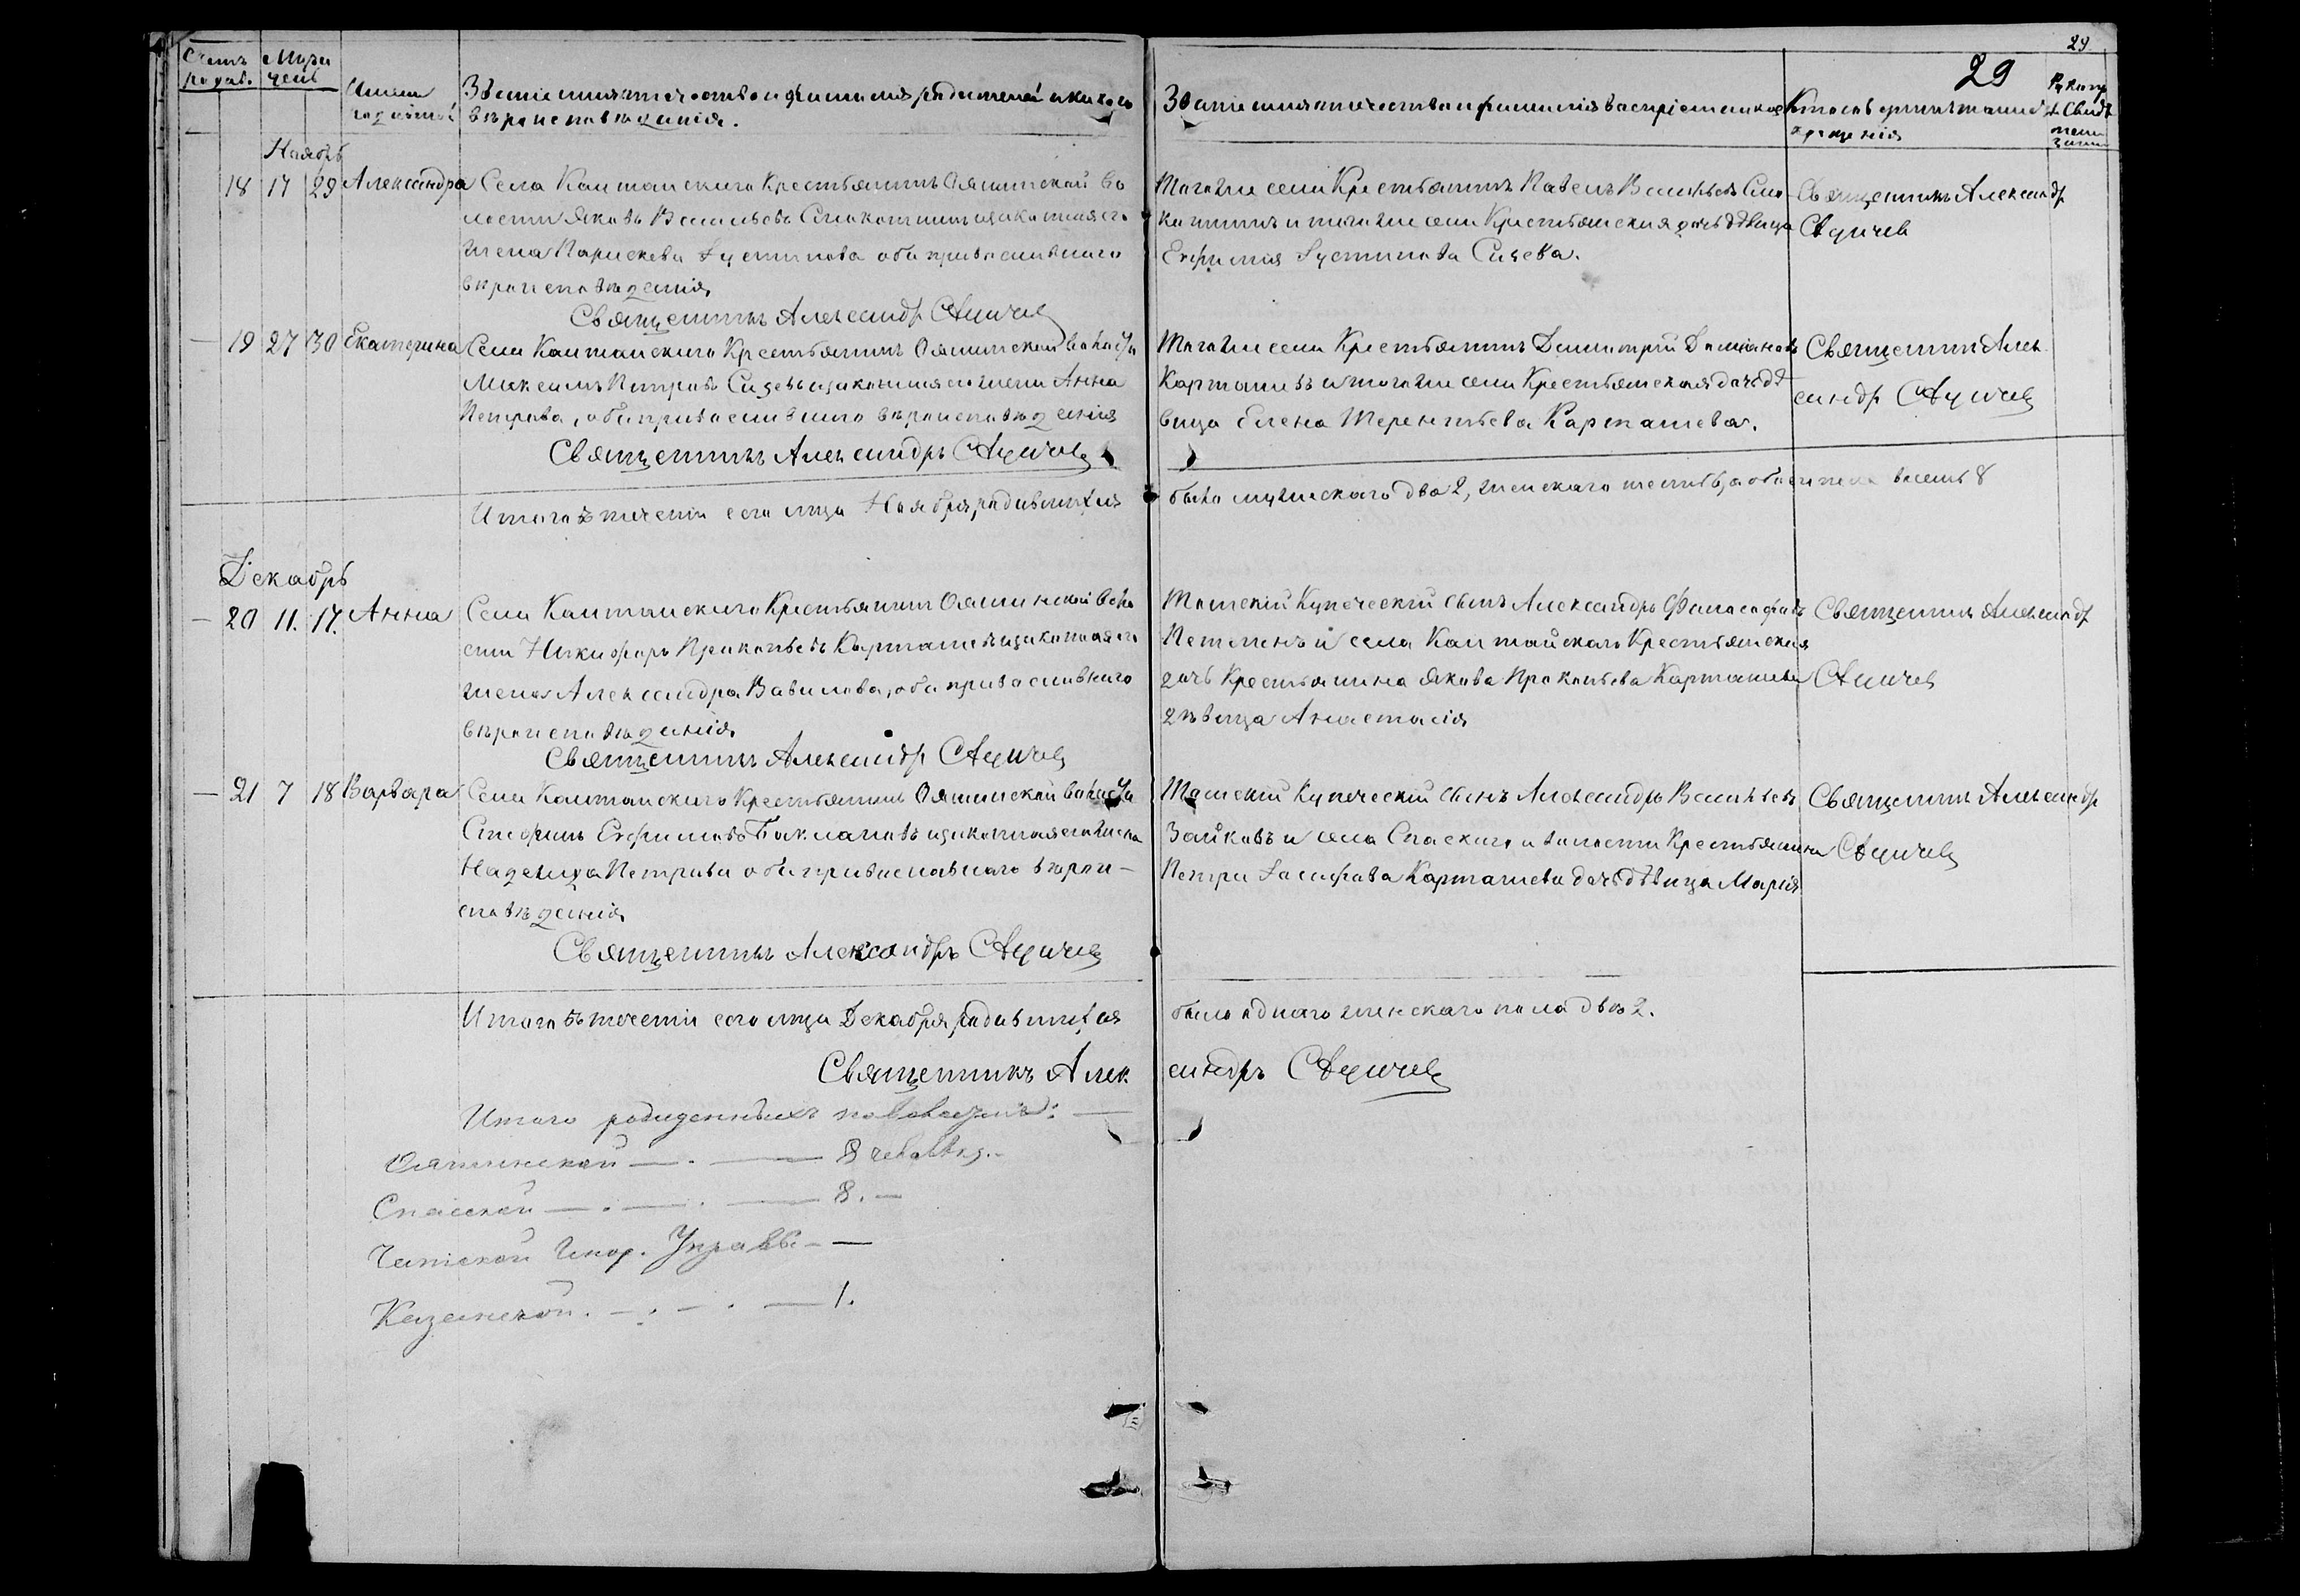 29
29
Счетъ родив. Мѣся цевъ
Имена родивш.
Званіе имя отчество и фамилія родителей и какого
вѣроисповѣданія.
Званіе имя отчество и фамилія воспріемниковъ
Кто совершилъ таинство
крещенія
Ноябрь
18 17 29 Александра
Села Каштанскаго Крестьянинъ Ояшинской Во
лости Яковъ Васильевъ и законная его
жена Параскева Іустинова оба православнаго
вѣроисповѣданія
Священникъ Александр
Тогоже села Крестьянинъ Павелъ Васильевъ
и тогоже села Крестьянская дочь дѣвица
Евфимія Іустинова Сизева.
Священникъ Александр
19 27 30 Екатерина
Села Каштанскаго Крестьянинъ Ояшинской волости
Максимъ Петровъ Сизевъ и законная его жена Анна
Петрова, оба православнаго вѣроисповѣданія
Священникъ Александръ
Тогоже села Крестьянинъ Димитрій Даміановъ
Карташевъ и тогоже села Крестьянская дочь дѣ
вица Елена Терентьева Карташева.
Священникъ Алек
сандр
Итого въ теченіи сего мца Ноября родившихся
было мужескаго два 2, женскаго шесть, а обоего пола восемь 8
Декабрь
20 11. 17. Анна
Села Каштанскаго Крестьянинъ Ояшинской Воло
сти Никифоръ Прокопьевъ Карташевъ и законная его
жена Александра Вавилова, оба православнаго
вѣроисповѣданія
Священникъ Александр
Томскій Купеческій сынъ Александръ Философовъ
Петлинъ и села Каштайскаго Крестьянская
дочь Крестьянина Якова Прокопьева Карташева
дѣвица Анастасія
Священникъ Александр
21 7 18 Варвара
Села Каштанскаго Крестьянинъ Ояшинской волости
Стефанъ Евфимовъ Баклановъ и законная его жена
Надежда Петрова оба православнаго вѣрои-
споведанія
Священникъ Александръ
Томскій Купеческій сынъ Александръ Васильевъ
Зайковъ и села Спаскаго и волости Крестьянина
Петра Іосифова Карташева дочь дѣвица Марія
Священникъ Александр
Итого въ теченіи сего мца Декабря родившихся
было одного женскаго пола двѣ 2.
Священникъ Алек
сандръ
Итого рожденныхъ по волостямъ:
Ояшинской — . — 8 человѣкъ.-
Спасской — . — . — 8. —
Чатской Инор. Управы — —
Казанской . — . — . — 1.